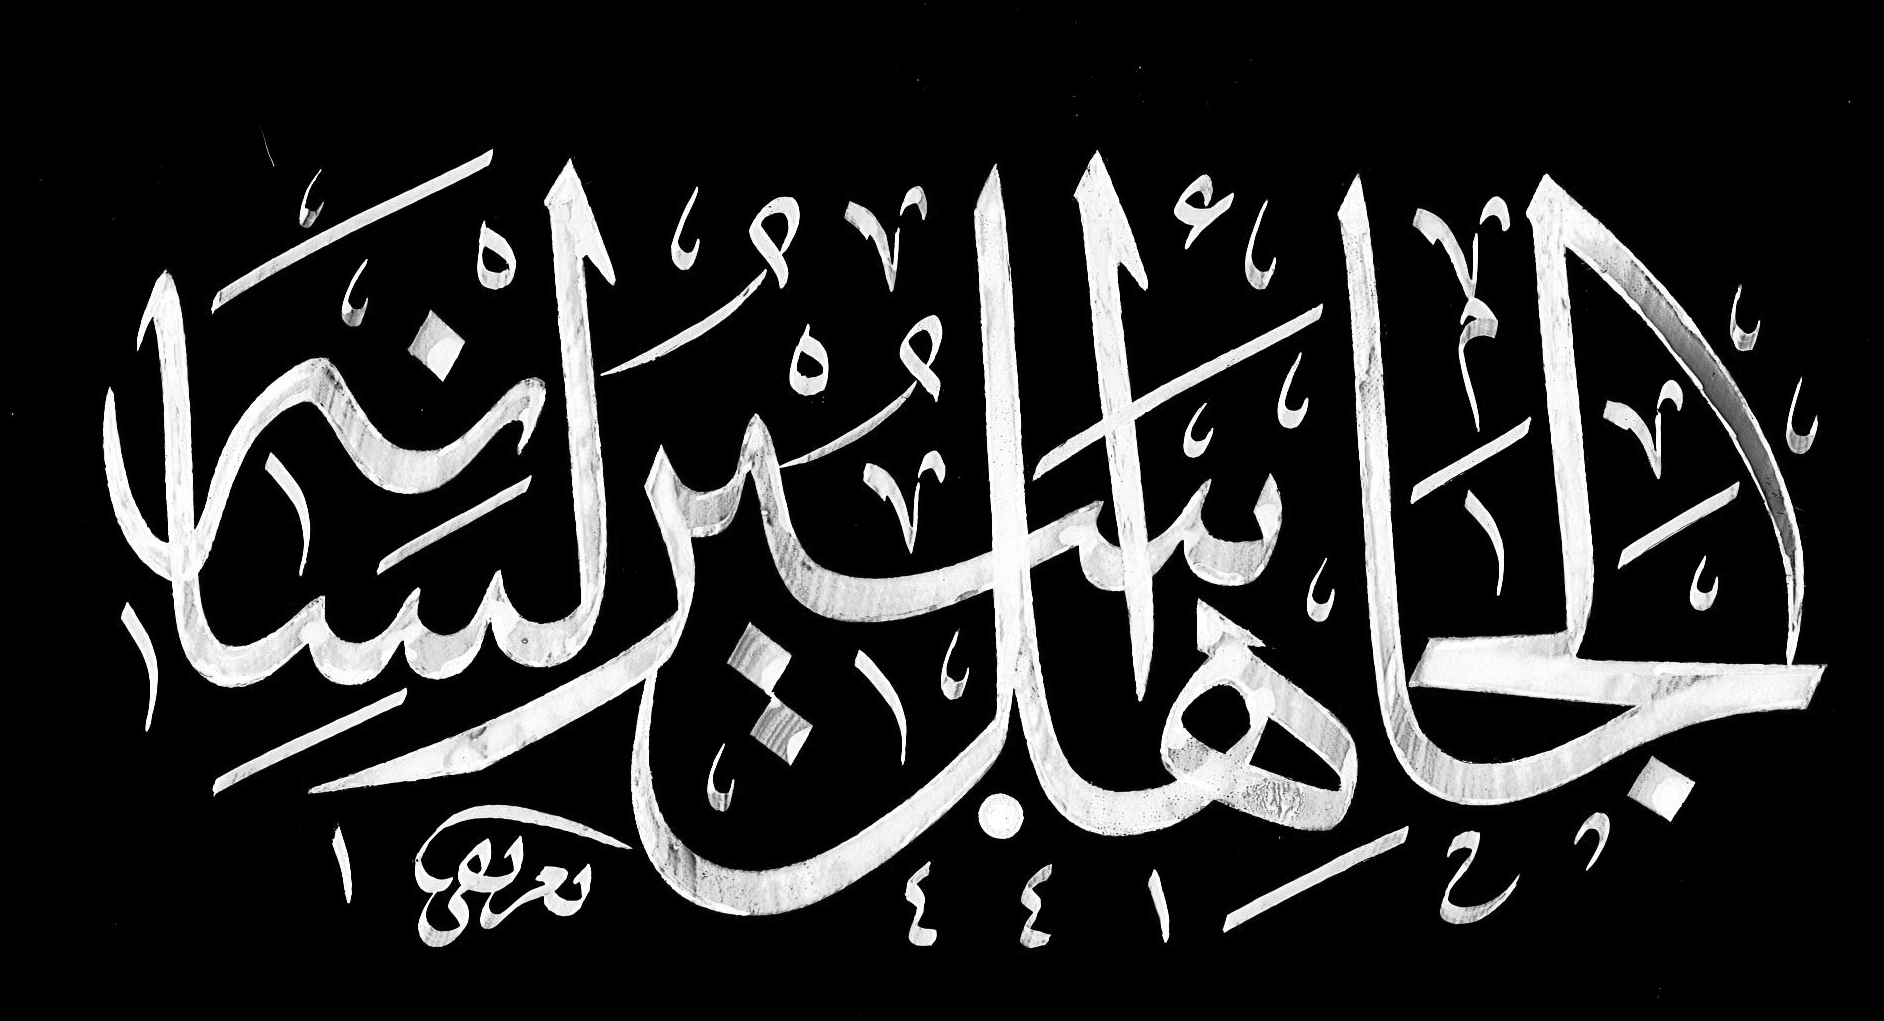 الجَاهِلُ أَسِيرُ لِسَانِهِ
١٤٤١